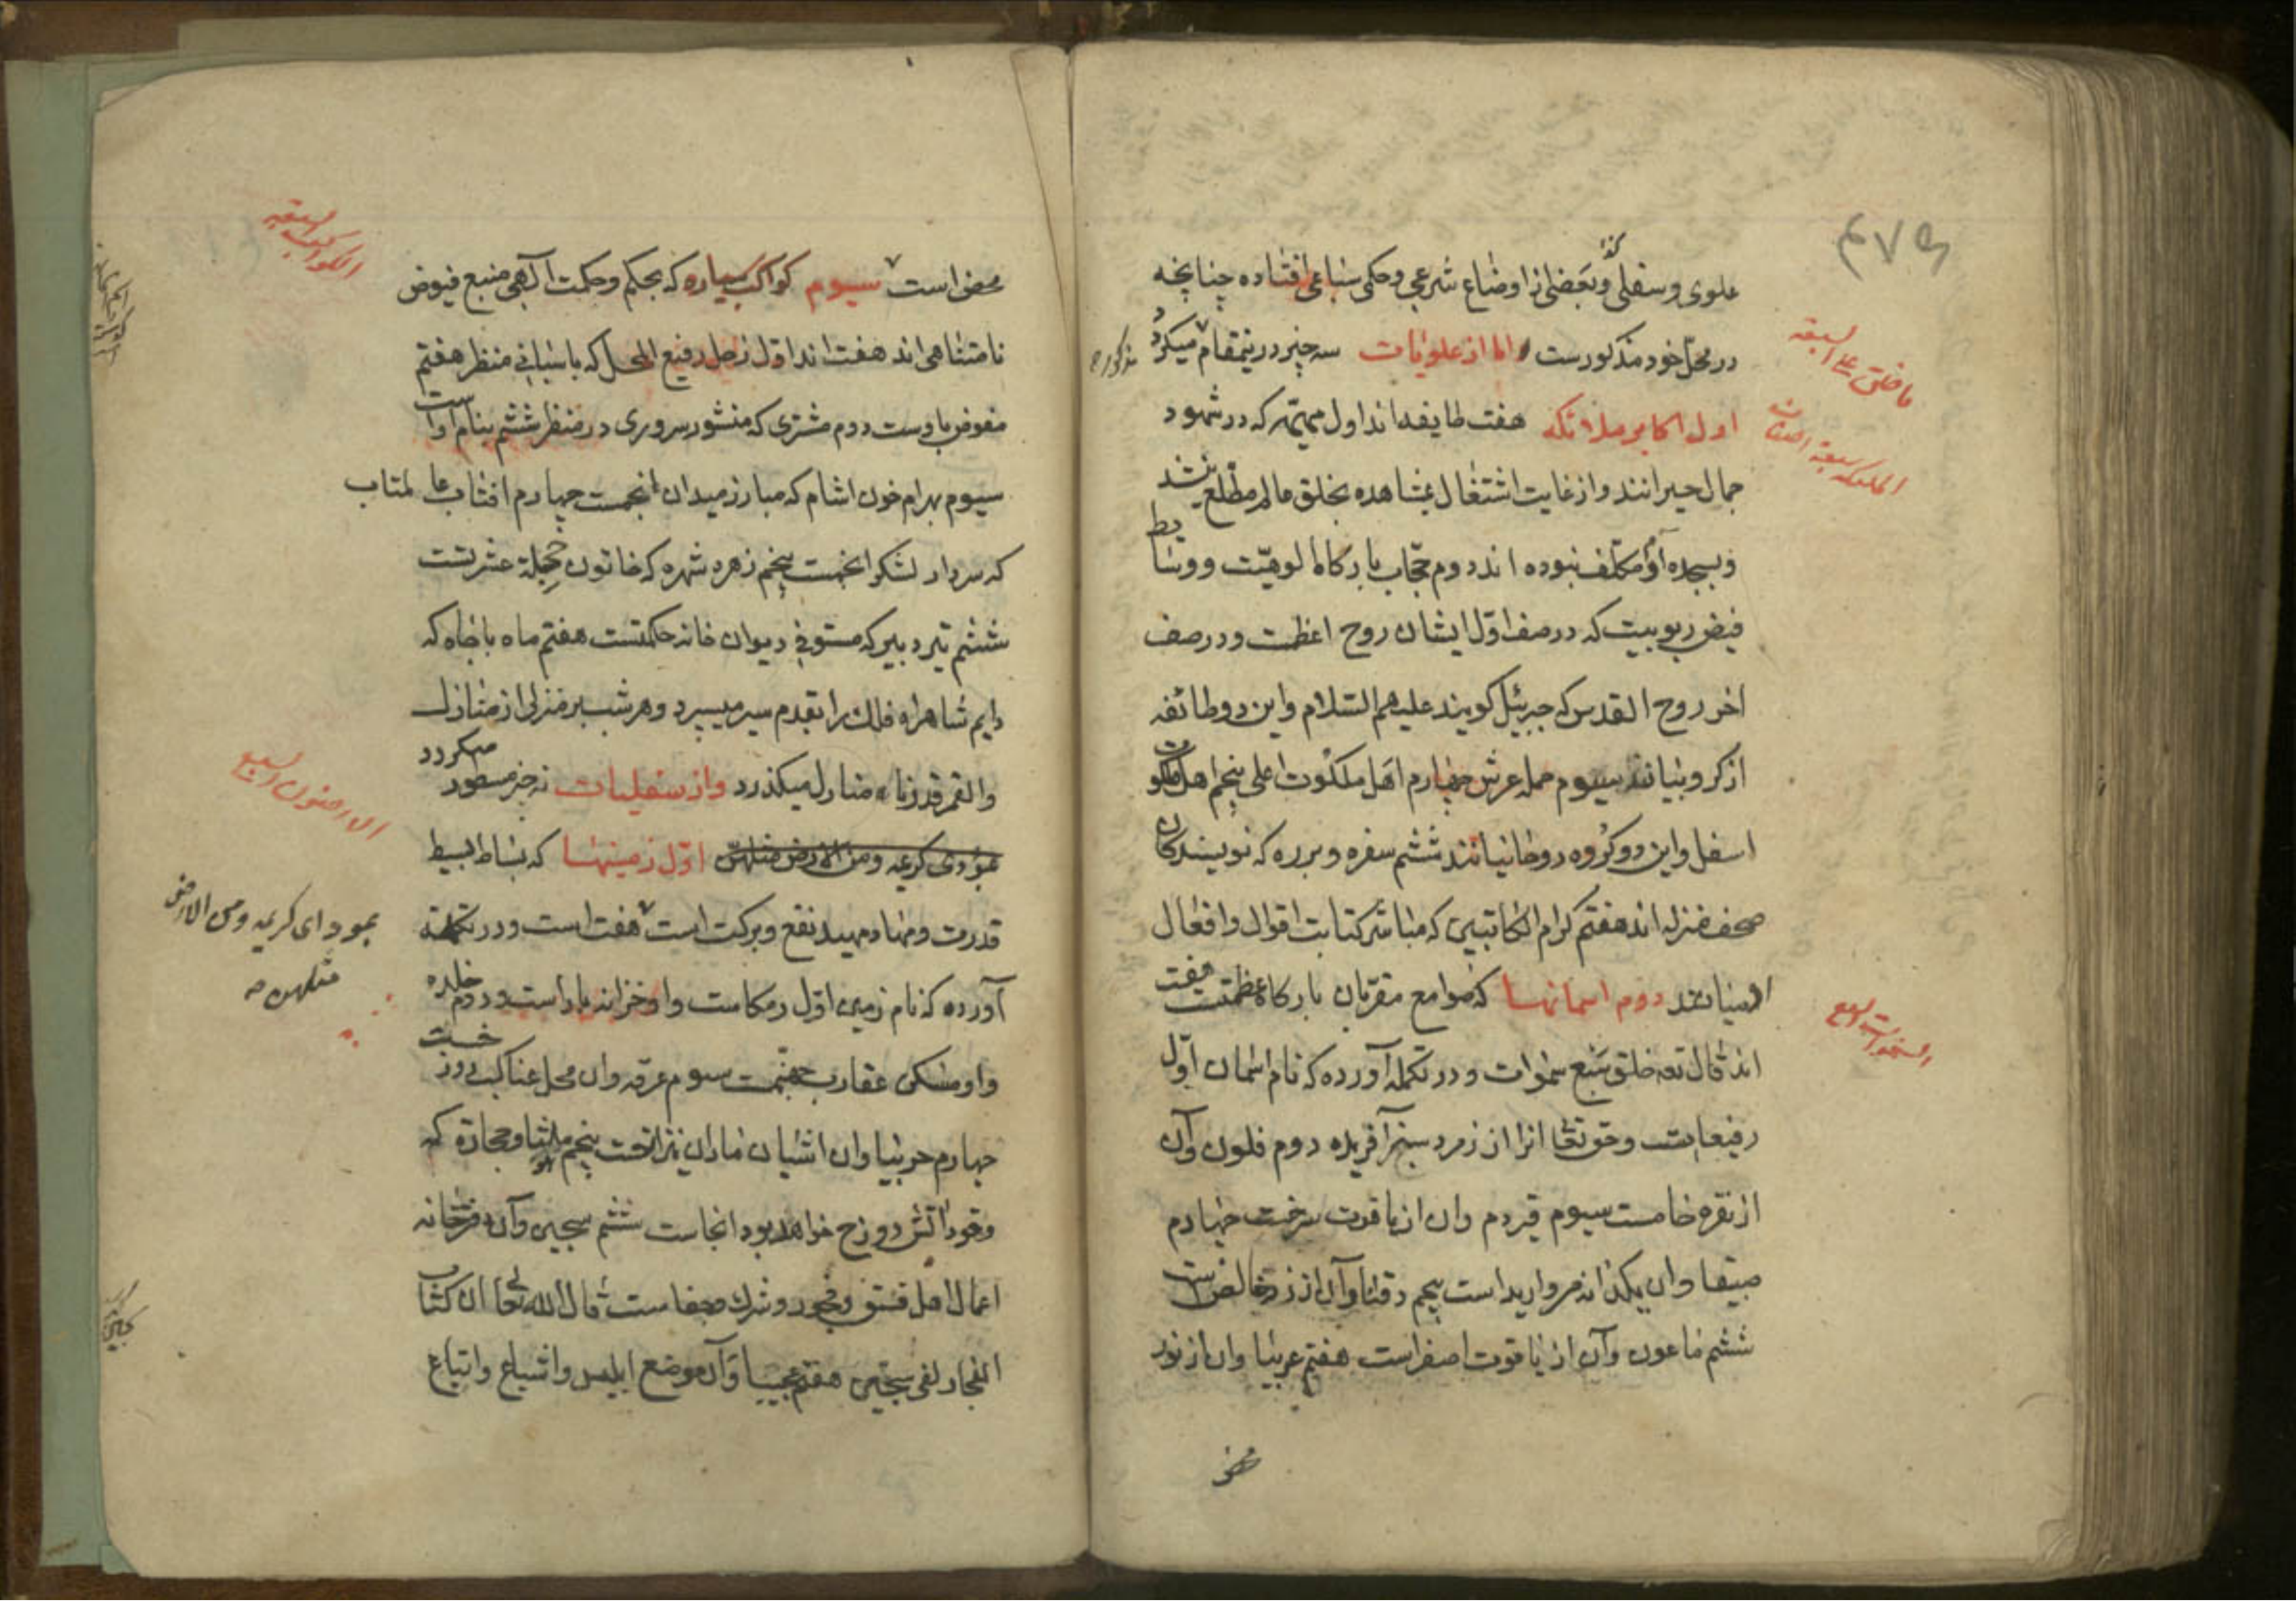 ۴۷۵
علوی و سفلی و بعضی از اوضاع شرعی و حکمی سباعی افتاده چنانچه
در محل خود مذکورست اما از علویات سه چیز درینمقام میکردد
مذکور
ما خلق علی السبعه
اول اکابر ملائکه هفت طایفه‌اند اول مهیمه که در شهود
الملائکه سبعة اصناف
جمال حیرانند و از غایت اشتغال بمشاهده بخلق عالم مطلع نشدند
و بسجده آدم مکلف نبوده اند دوم حجاب بارکاه الوهیت و وسایط
فیض ربوبیت که در صف اول ایشان روح اعظمست و در صف
اخر روح القدس که جبرئیل کویند علیهم السلام و این دو طائفه
از کروبیانند سیوم حمله عرش چهارم اهل ملکوت اعلی پنجم اهل ملکوت
اسفل و این دو کروه روحانیانند ششم سفره و برره که نویسندکان
صحف منزله اند هفتم کرام الکاتبین که مباشر کتابت اقوال و افعال
ادمیانند دوم اسمانها که صوامع مقربان بارکاه عظمتست هفت
السموات السبع
اند قال تعه خلق سبع سموات و در تکمله آورده که نام اسمان اول
رفیعاست و حق تعا انرا از زمرد سبز آفریده دوم فلون و آن
از نقره خامست سیوم قیردم و ان از یاقوت سرخست چهارم
صیقا و ان یکدانه مروارید است پنجم دقنا و آن از زر خالص است
ششم ماعون و آن از یاقوت اصفر است هفتم عربیا و ان از نور
محض
محض است سیوم کواکب سیاره که بحکم و حکمت آلهی منبع فیوض
الکواکب السبعه
نامتناهی اند هفت اند اول زحل رفیع المحل که پاسبانی منظر هفتم
مفوض باوست دوم مشتری که منشور سروری در منظر ششم بنام اوست
سیوم بهرام خون اشام که مبارز میدان انجمست چهارم افتاب عالمتاب
که سردار لشکر انجمست پنجم زهره شهره که خاتون حجله عشرتست
ششم تیر دبیر که مستوفی دیوان خانه حکمتست هفتم ماه با جاه که
دایم شاهراه فلک را بقدم سیر میسپرد و هر شب بر منزلی از منازل
والقمر قدرناه منازل میکذرد و از سفلیات نه چیز مسطور میکردد
الارضون السبع
بمؤدی کریمه و من الارض مثلهن اول زمینها که بساط بسیط
بمودای کریمه ومن الارض
مثلهن
قدرت و مهاد مهید نفع و برکت است هفت است و در تکمله
آورده که نام زمین اول رمکاست و او خزانه باد است و دوم خلده
و او مسکن عقارب جهنمست سیوم عرقه و ان محل عناکب دوزخست
چهارم حربیا و ان اشیان ماران نیزانجست پنجم ملثا و حجاره که
وقود اتش دوزخ خواهد بود انجاست ششم سجین و آن دفترخانه
اعمال اهل فسق و فجور و شرک و جفاست قال الله تعالی ان کتاب
الفجار لفی سجین هفتم عجیبا و آن موضع ابلیس و اشیاع و اتباع